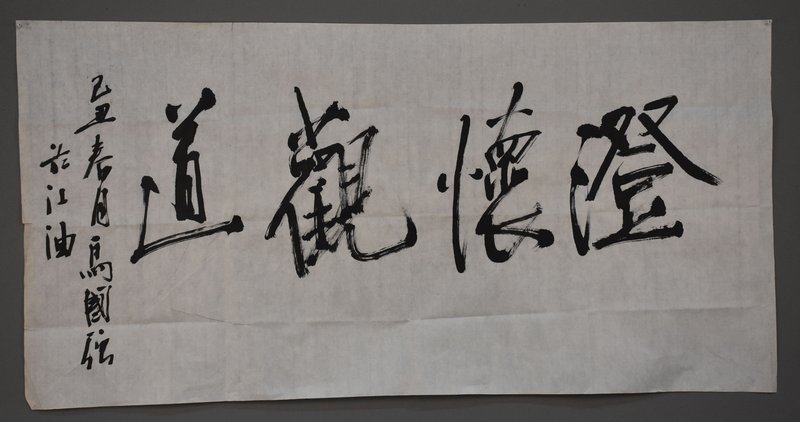 澄懷觀道
己丑春月馬國強
於江油